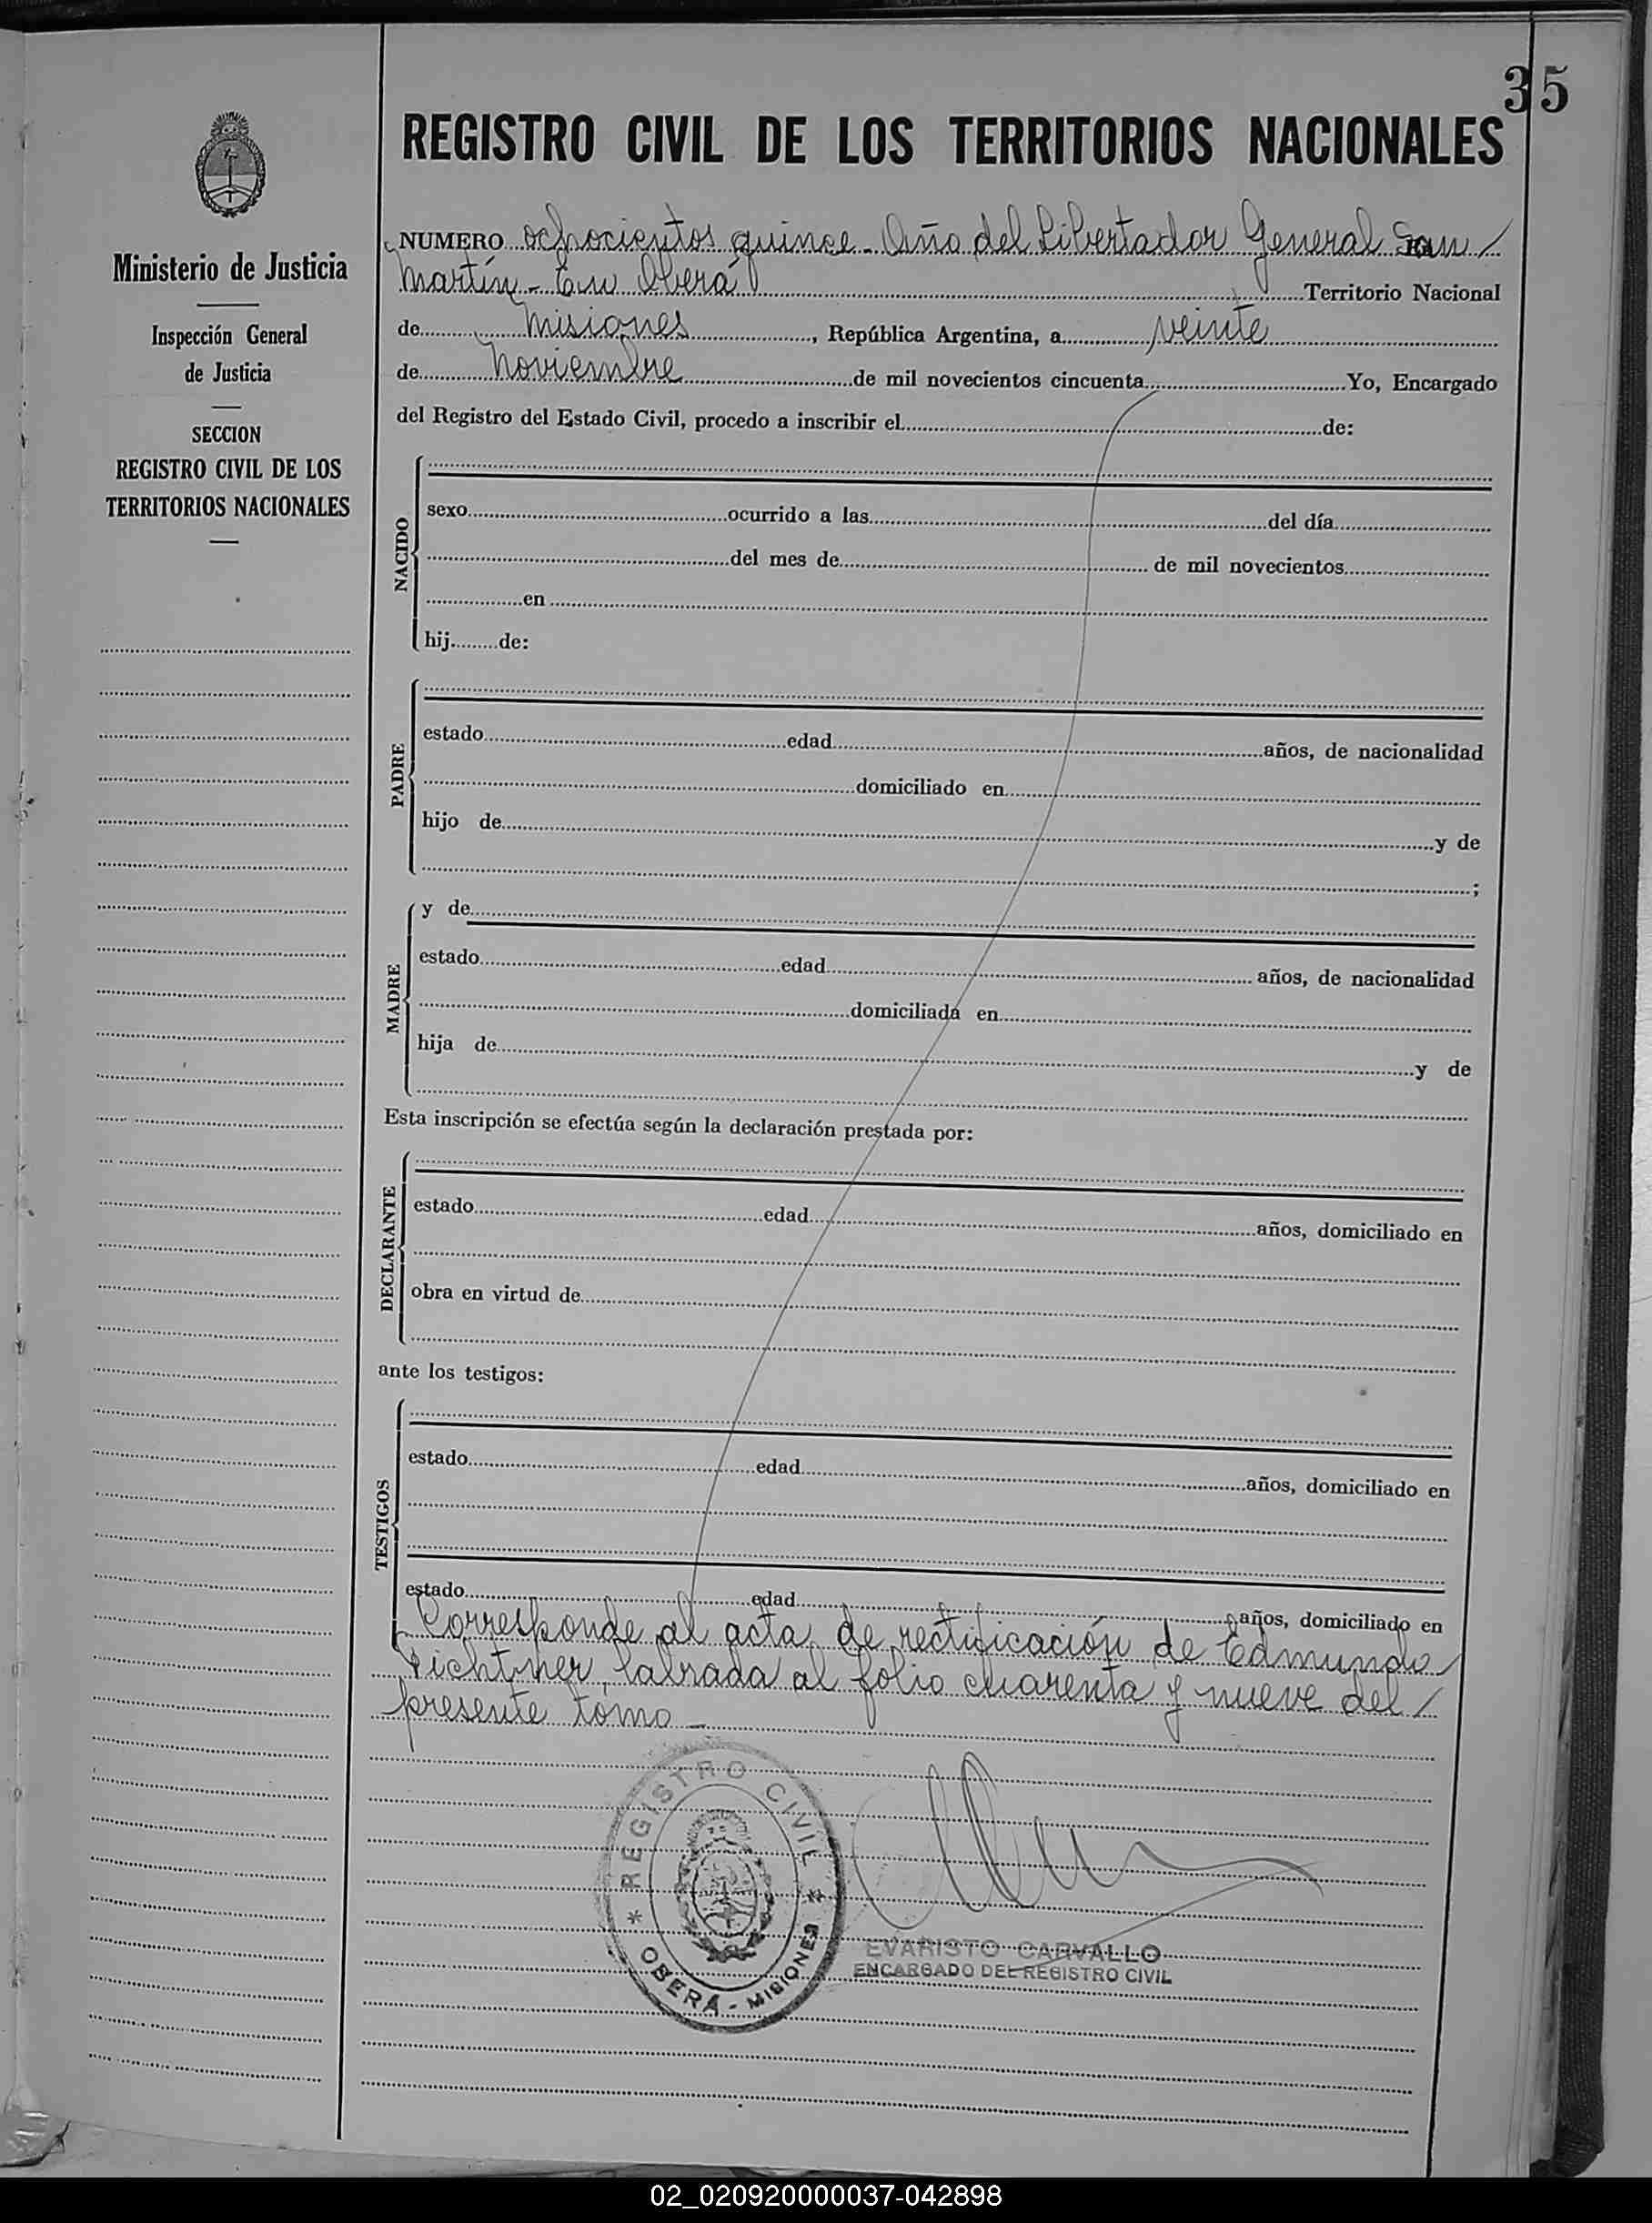 35
REGISTRO CIVIL DE LOS TERRITORIOS NACIONALES
Ministerio de Justicia
Inspección General
de Justicia
SECCION
REGISTRO CIVIL DE LOS
TERRITORIOS NACIONALES
NUMERO ochocientos quince - Año del Libertador General San
Martín - En Oberá Territorio Nacional
de Misiones, República Argentina, a veinte
de noviembre de mil novecientos cincuenta Yo, Encargado
del Registro del Estado Civil, procedo a inscribir el de:
NACIDO
sexo ocurrido a las del día
del mes de de mil novecientos
en
hij de:
PADRE
estado edad años, de nacionalidad
domiciliado en
hijo de y de
;
MADRE
y de
estado edad años, de nacionalidad
domiciliada en
hija de y de
Esta inscripción se efectúa según la declaración prestada por:
DECLARANTE
estado edad años, domiciliado en
obra en virtud de
ante los testigos:
TESTIGOS
estado edad años, domiciliado en
estado edad años, domiciliado en
Corresponde al acta de rectificación de Edmundo
labrada al folio cuarenta y nueve del
presente tomo -
* REGISTRO CIVIL *
OBERÁ - MISIONES
EVARISTO CARVALLO
ENCARGADO DEL REGISTRO CIVIL
02_020920000037-042898